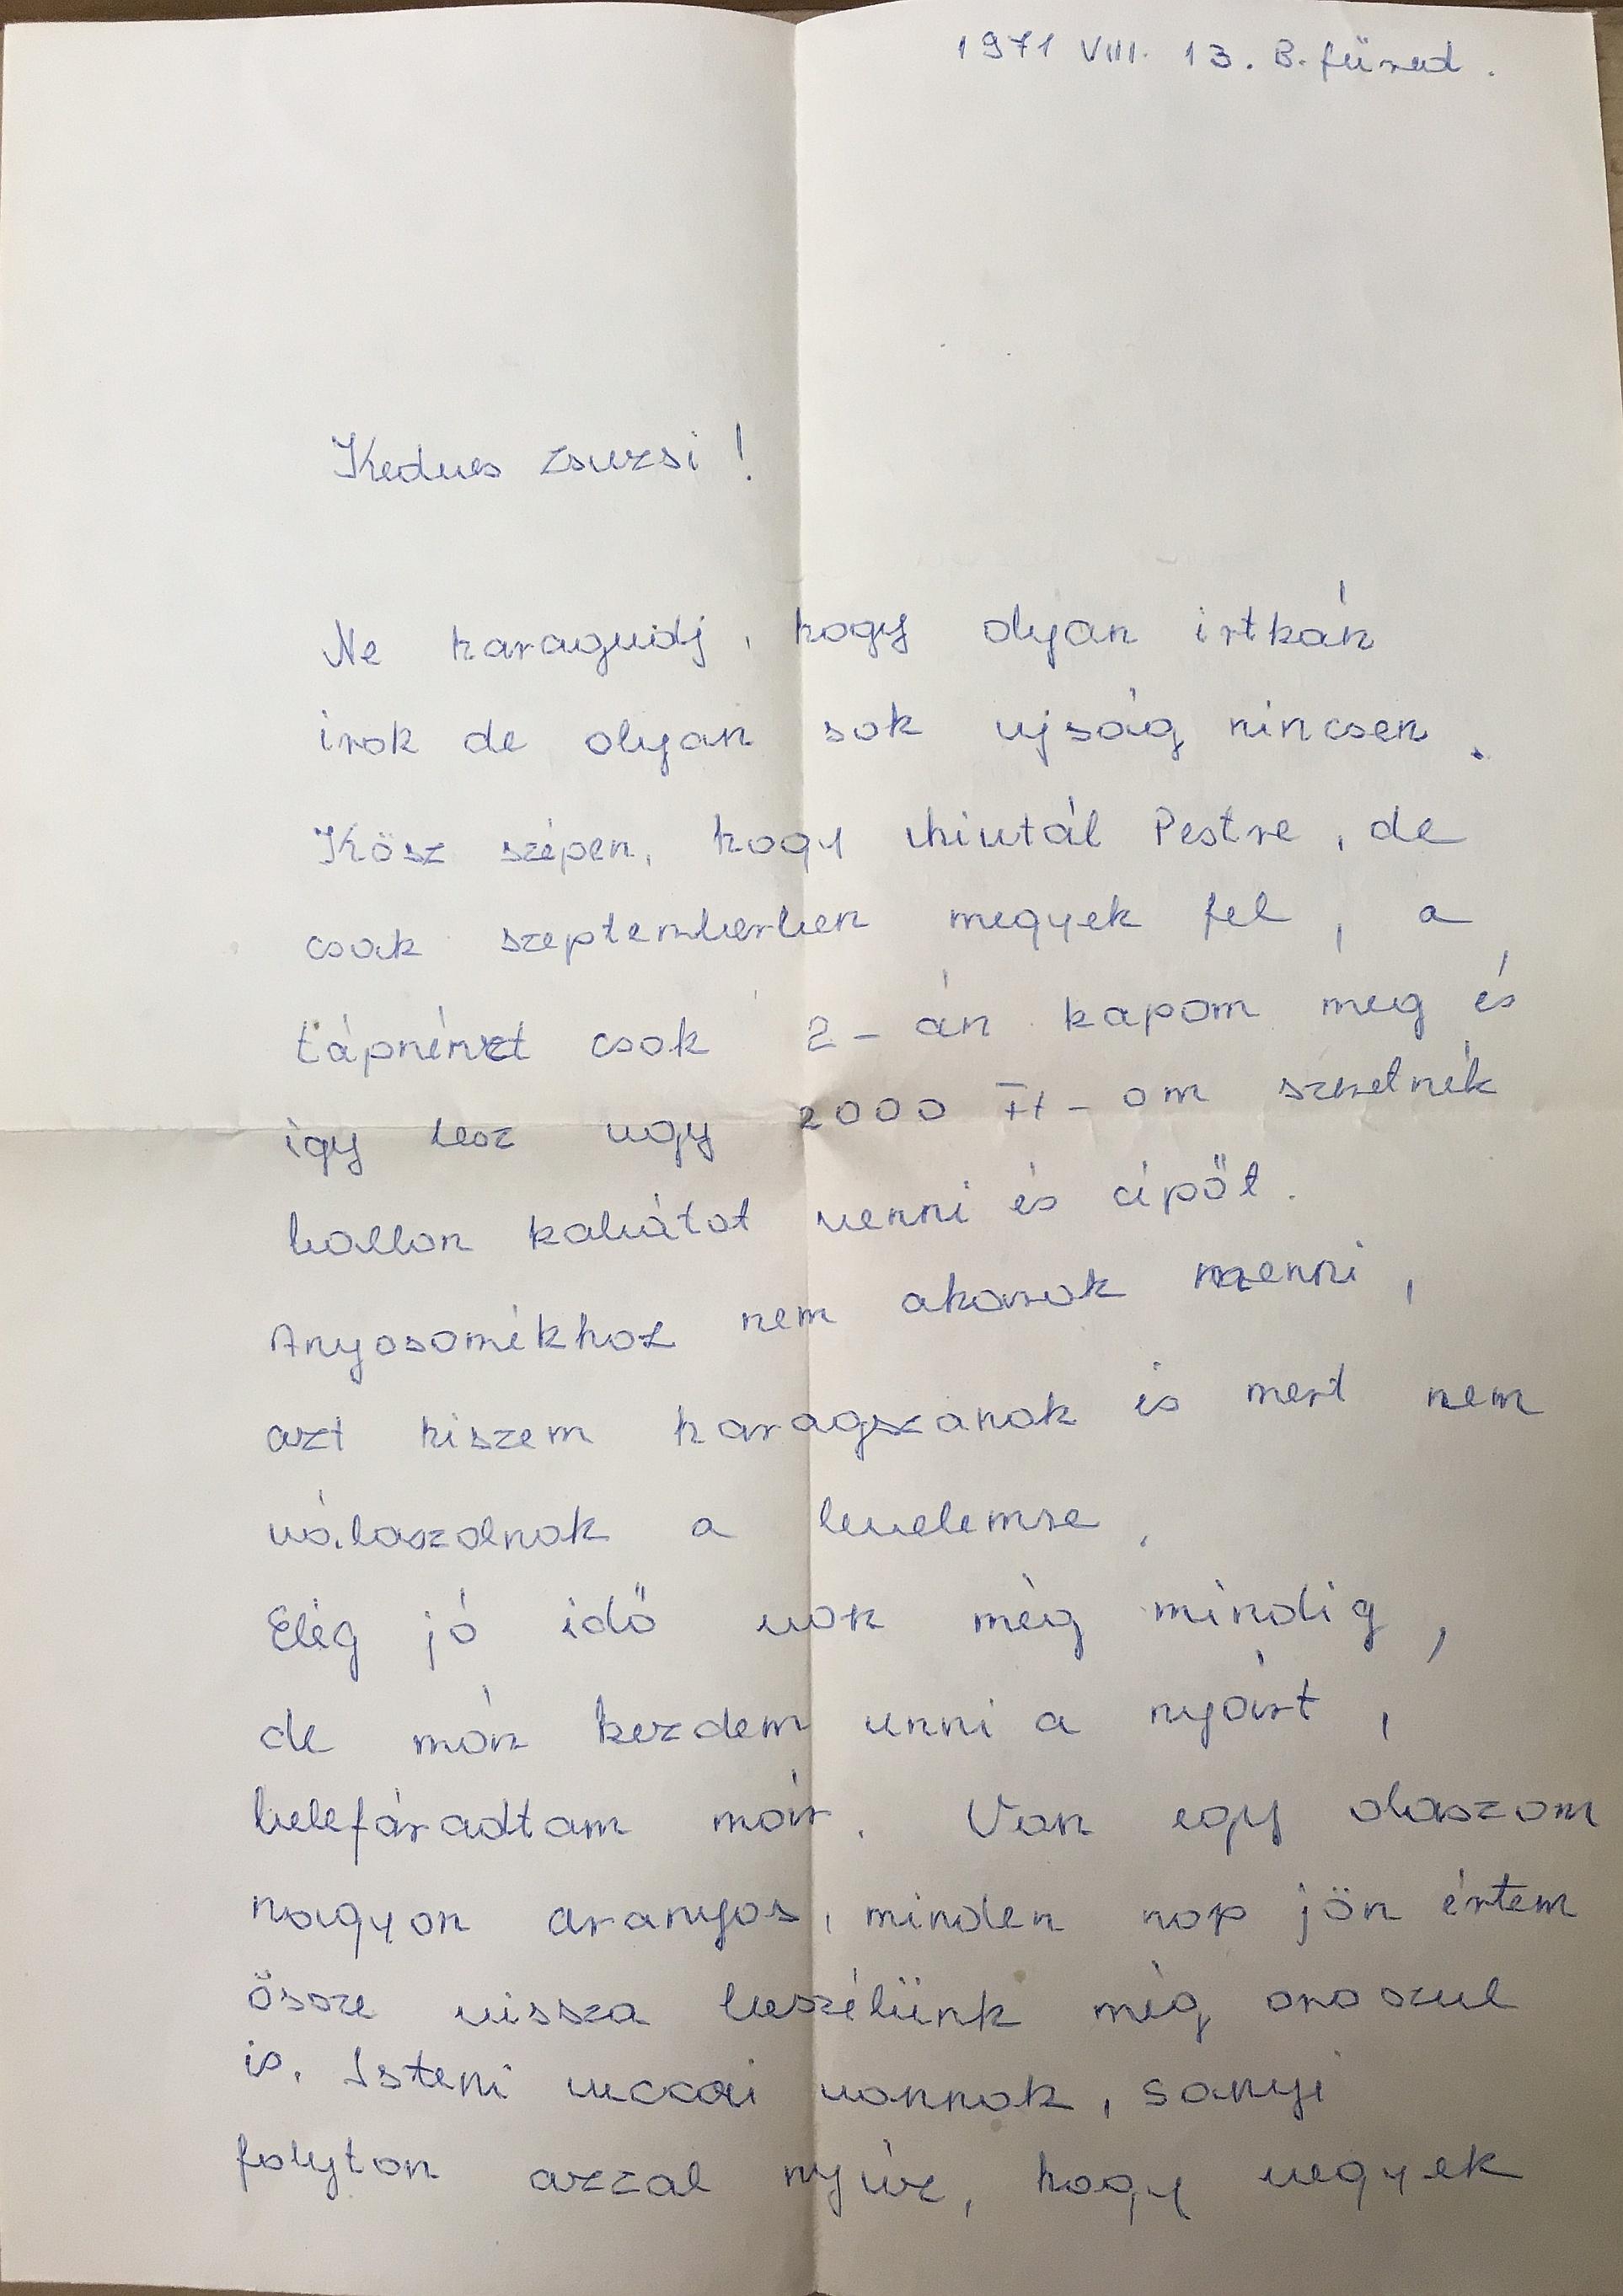 1971 VIII. 13. B. füred.
Kedves Zsuzsi!
Ne haragudj, hogy olyan ritkán
irok de olyan sok ujság nincsen.
Kösz szépen, hogy hivtál Pestre, de
csak szeptemberben megyek fel, a
tápnénzt csak 2-án kapom meg és
igy lesz ugy 2000 Ft-om szeretnék
ballon kabátot venni és cipőt.
Anyosomékhoz nem akarok menni,
azt hiszem haragszanak is mert nem
válaszolnak a levelemre.
Elég jó idő van még mindig,
de mán kezdem unni a nyárt,
belefáradtam már. Van egy olaszom
nagyon aranyos, minden nap jön értem
össze vissza beszélünk még oroszul
is. Isteni vannak, Sanyi
folyton azzal nyúz, hogy vegyek